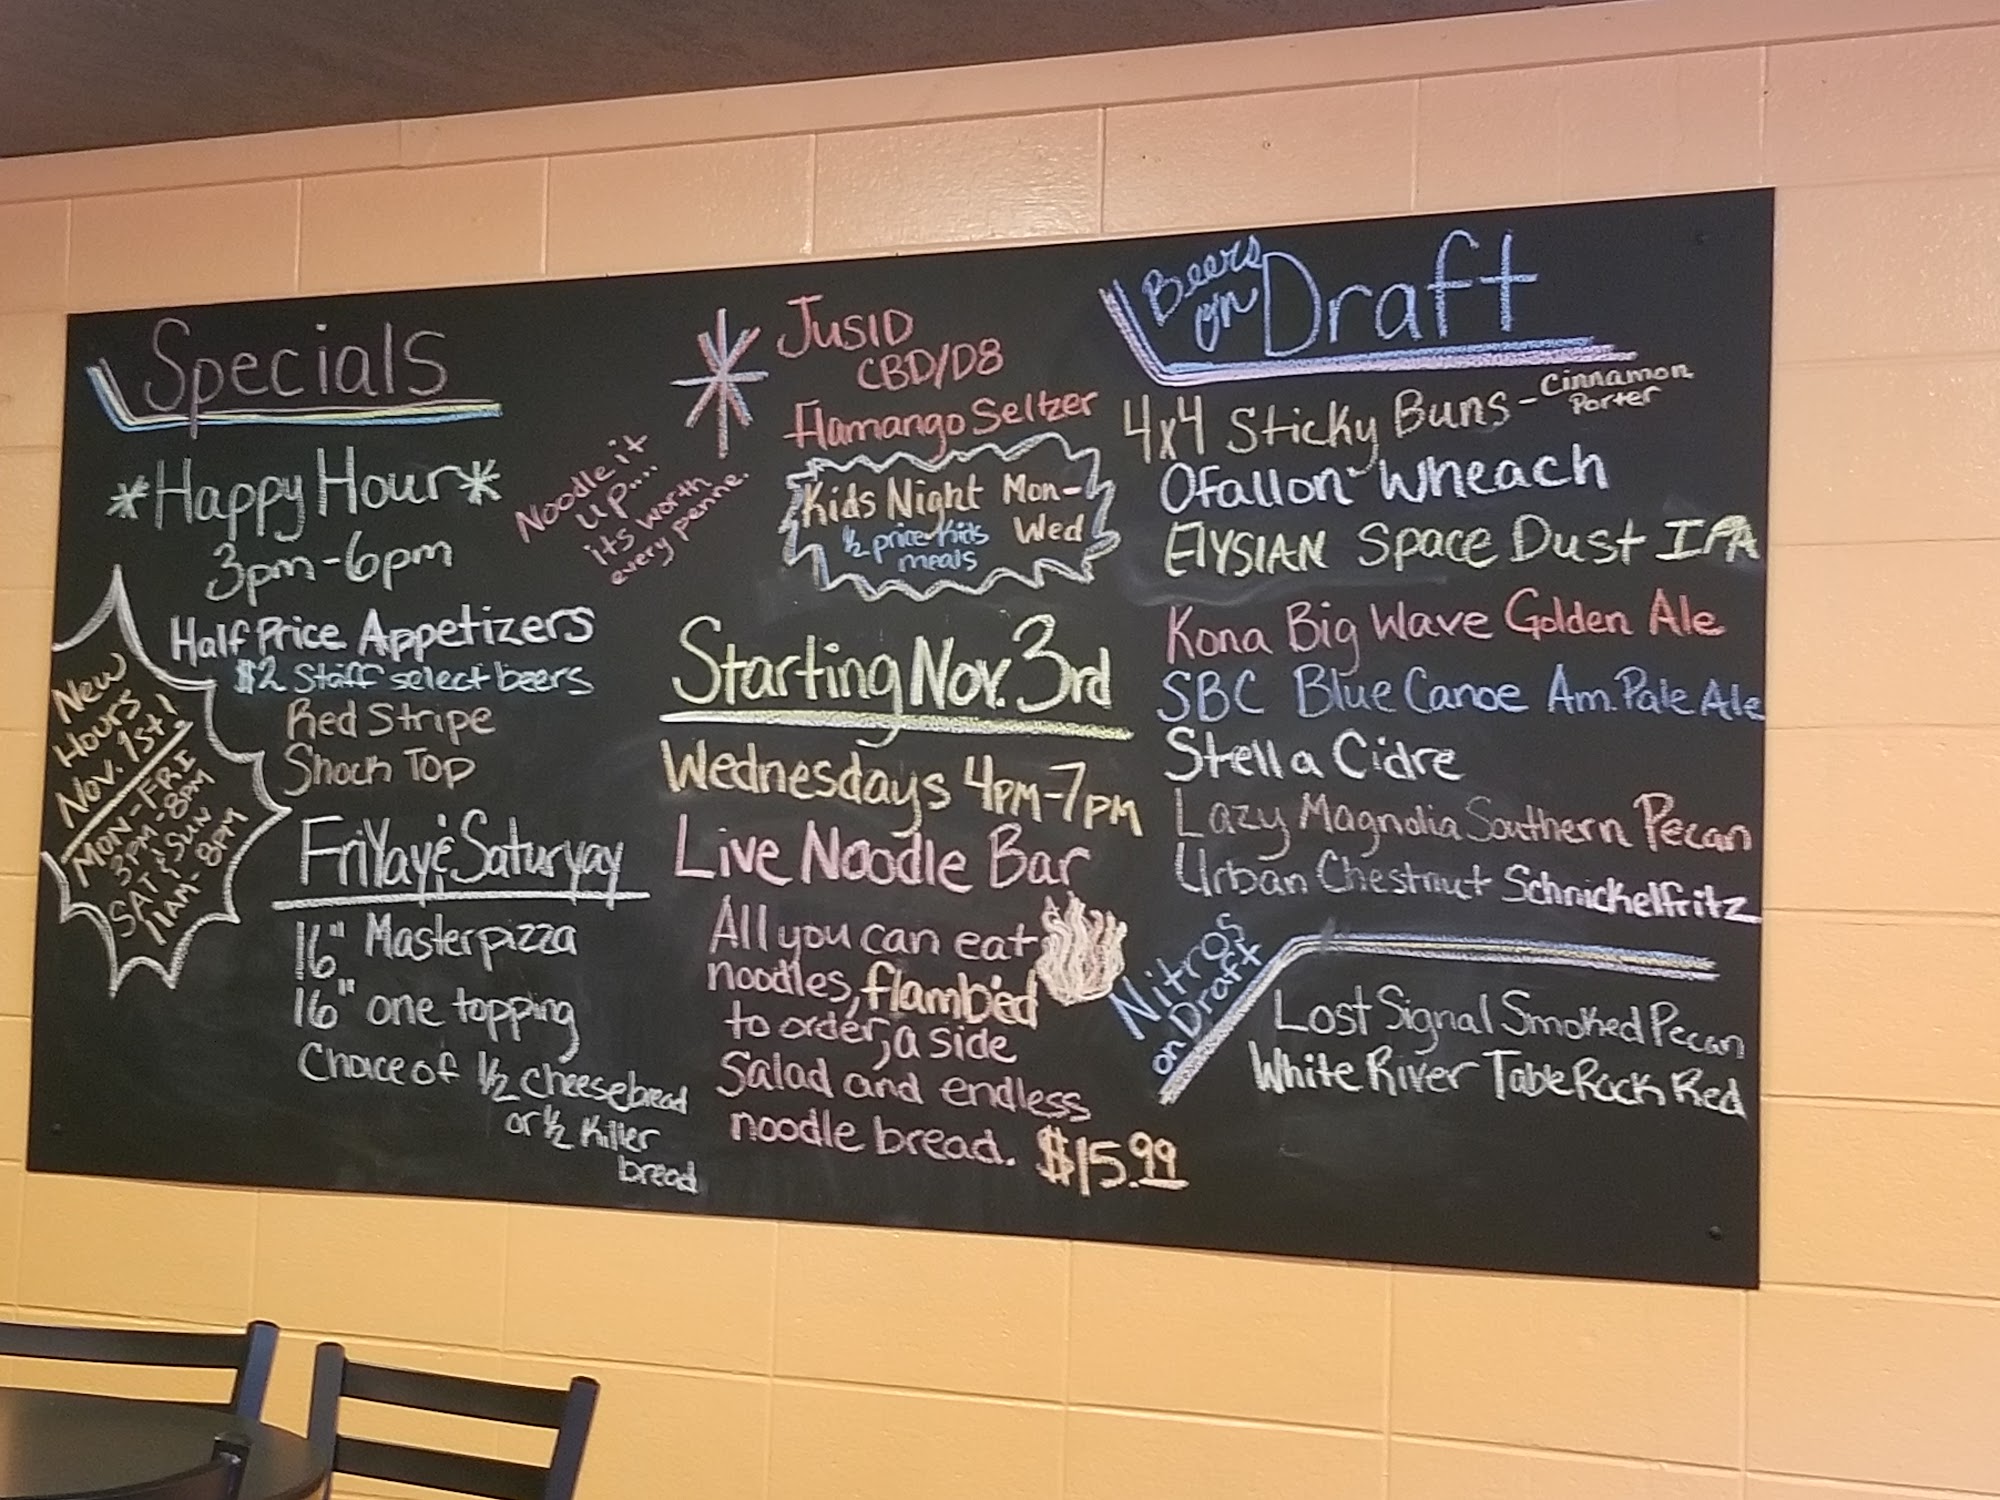 Specials
*Happy Hour*
3pm-6pm
Half Price Appetizers
$2 Staff select beers
Red Stripe
Shock Top
New
Hours
Nov. 1st!
MON-FRI
3PM-8PM
SAT & SUN
11AM-8PM
FriYay & Saturyay
16" Masterpizza
16" one topping
Choice of 1/2 cheesebread
or 1/2 Killer
bread
Noodle it
up....
its worth
every penne.
JusID
CBD/D8
Flamango Seltzer
Kids Night Mon-
Wed
1/2 price kids
meals
Starting Nov. 3rd
Wednesdays 4PM-7PM
Live Noodle Bar
All you can eat
noodles, flambéd
to order, a side
Salad and endless
noodle bread. $15.99
Beers
on Draft
4x4 Sticky Buns - Cinnamon
Porter
Ofallon Wheach
ElYSIAN Space Dust IPA
Kona Big Wave Golden Ale
SBC Blue Canoe Am. Pale Ale
Stella Cidre
Lazy Magnolia Southern Pecan
Urban Chestnut Schnickelfritz
Nitros
on Draft
Lost Signal Smoked Pecan
White River Table Rock Red